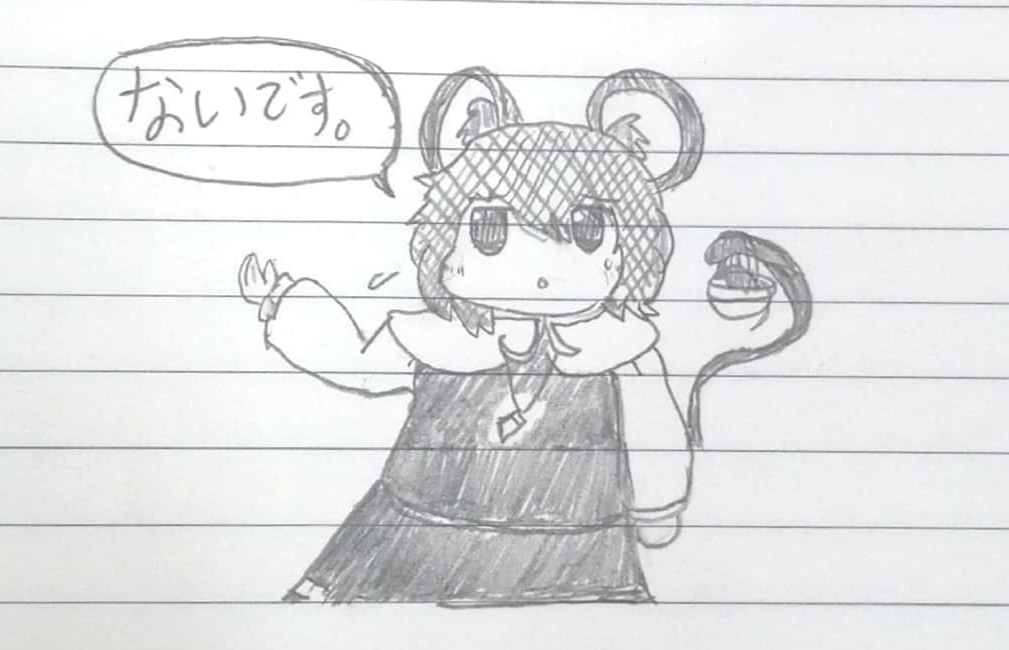 ないです。